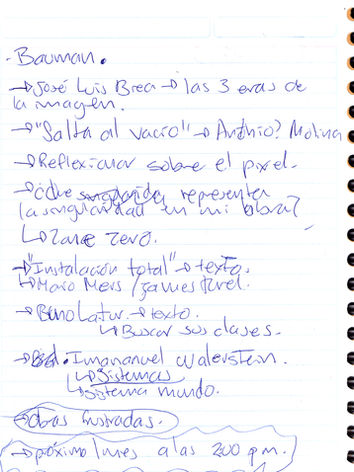 - Bauman.
→José Luis Brea → las 3 eras de
la imagen.
→"Salta al vacio" → Antnio? Molina
→Reflexionar sobre el pixel.
→ representa
la singularidad en mi obra?
↳ Zone Zero.
→"Instalación total" → texto.
↳ Maro Mers / James Turel.
→Bruno Latur. → texto.
↳ Buscar sus clases.
→ Imanuel Walerstein.
↳ Sistemas
↳ sistema mundo.
→obras frustradas.
→próximo lunes a las 2:00 p.m.